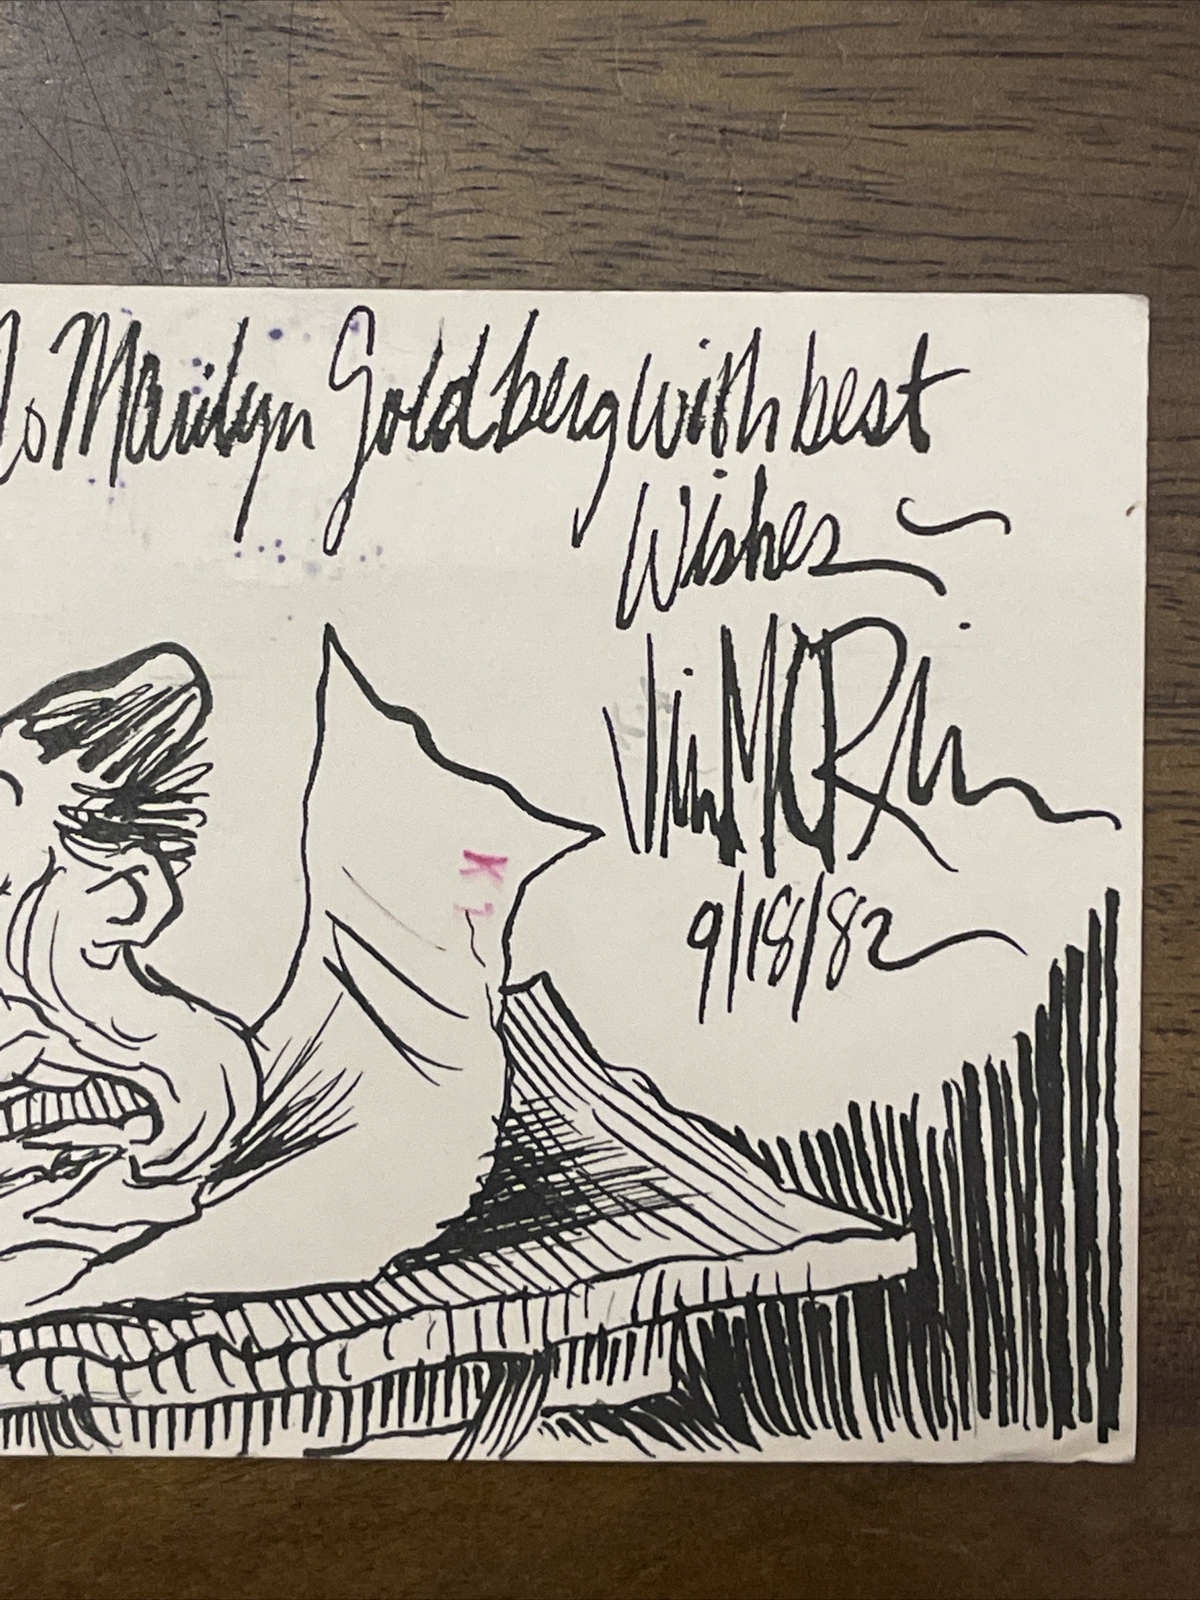 To Marilyn Goldberg with best
Wishes
Jim MORin
9/18/82
K